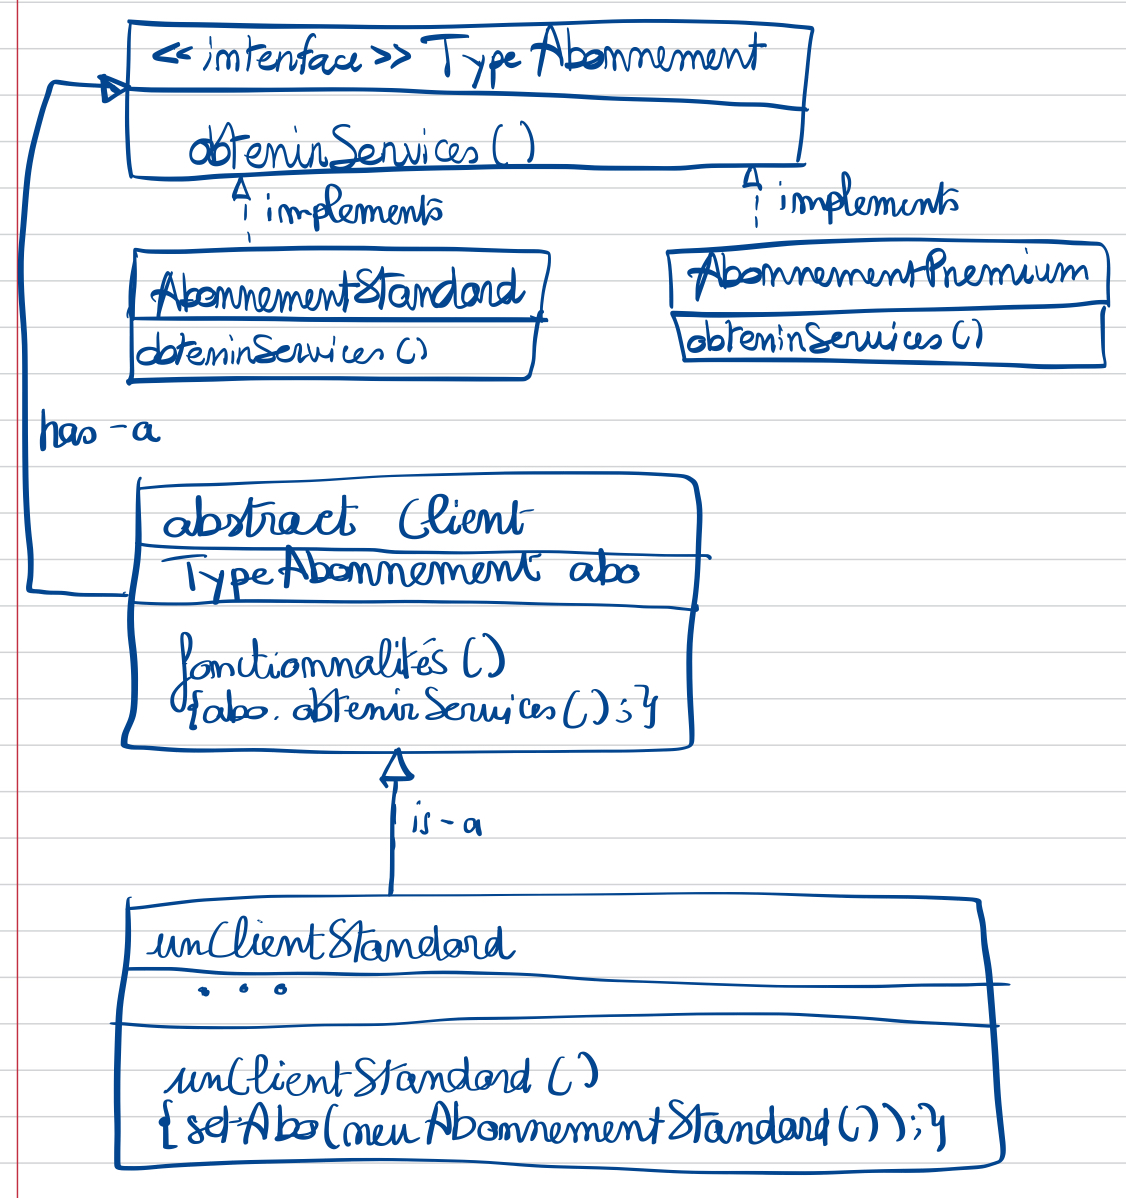 <<interface>> TypeAbonnement
obtenirServices()
implements
implements
AbonnementStandard
obtenirServices()
AbonnementPremium
obtenirServices()
has-a
abstract Client
TypeAbonnement abo
fonctionnalités()
{abo.obtenirServices();}
is-a
unClientStandard
...
unClientStandard()
{setAbo(new AbonnementStandard());}